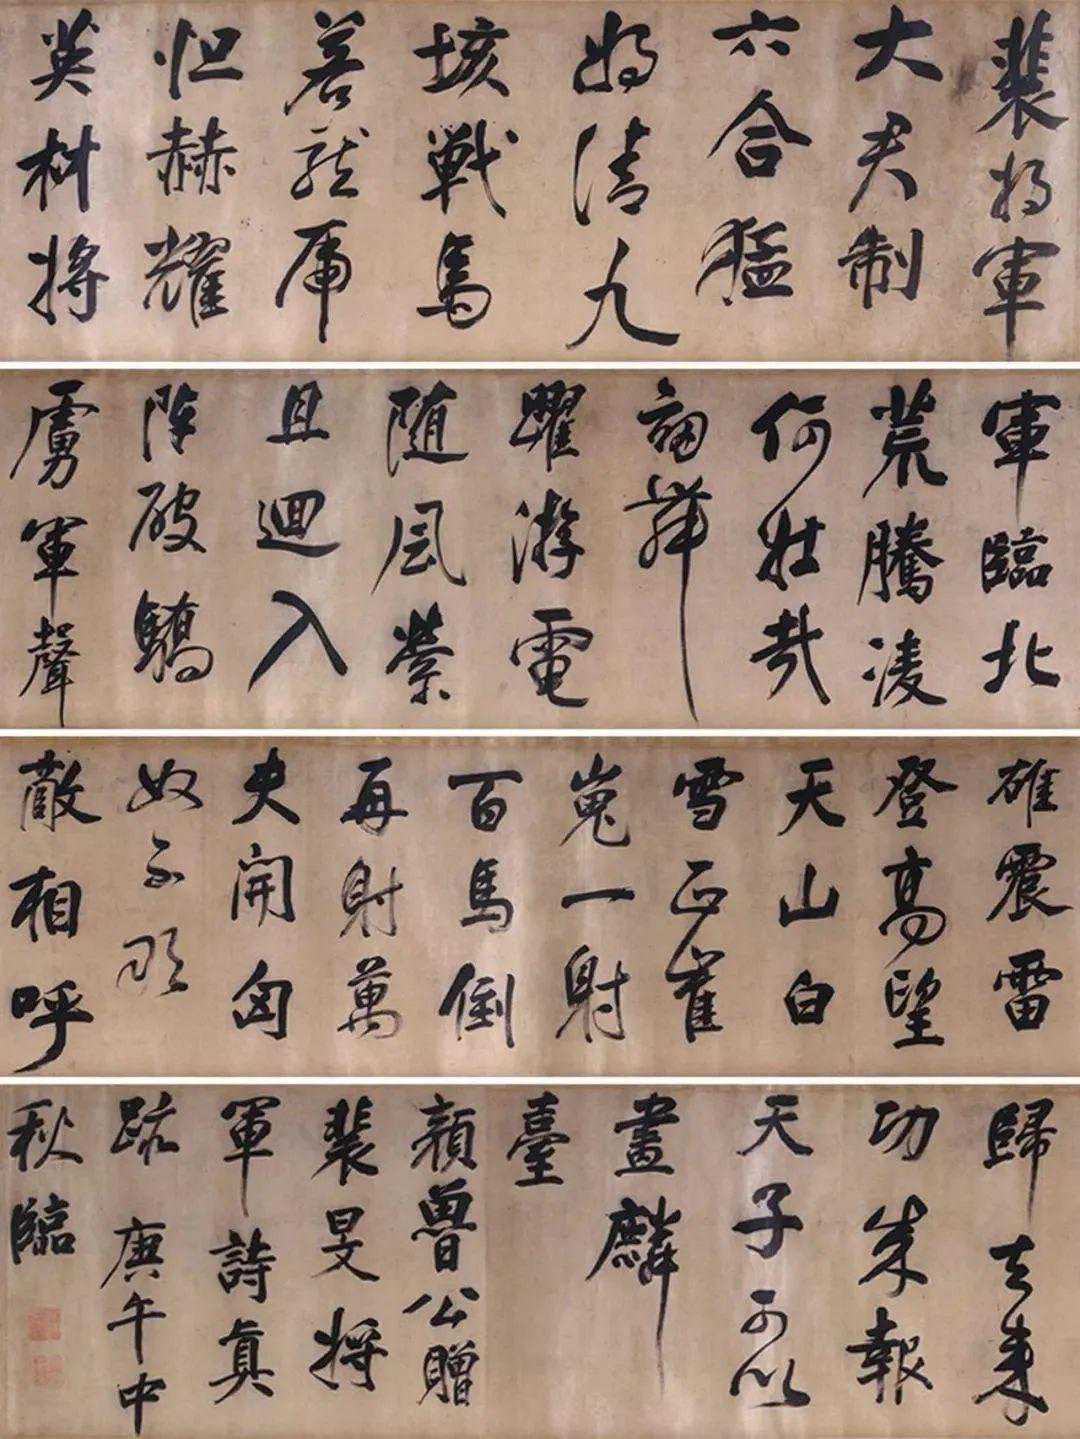 裴将軍
大君制
六合猛
将清九
垓戦馬
若龍虎
怛赫耀
英材將
軍臨北
荒騰凌
何壯哉
劒舞
躍游電
随風縈
且迴入
陣破驕
虜軍聲
雄震雷
登高望
天山白
雪正崔
嵬一射
百馬倒
再射萬
夫開匈
奴不敢
敵相呼
歸去来
功成報
天子可以
畫麟
臺
顔魯公贈
裴旻将
軍詩真
跡庚午中
秋臨